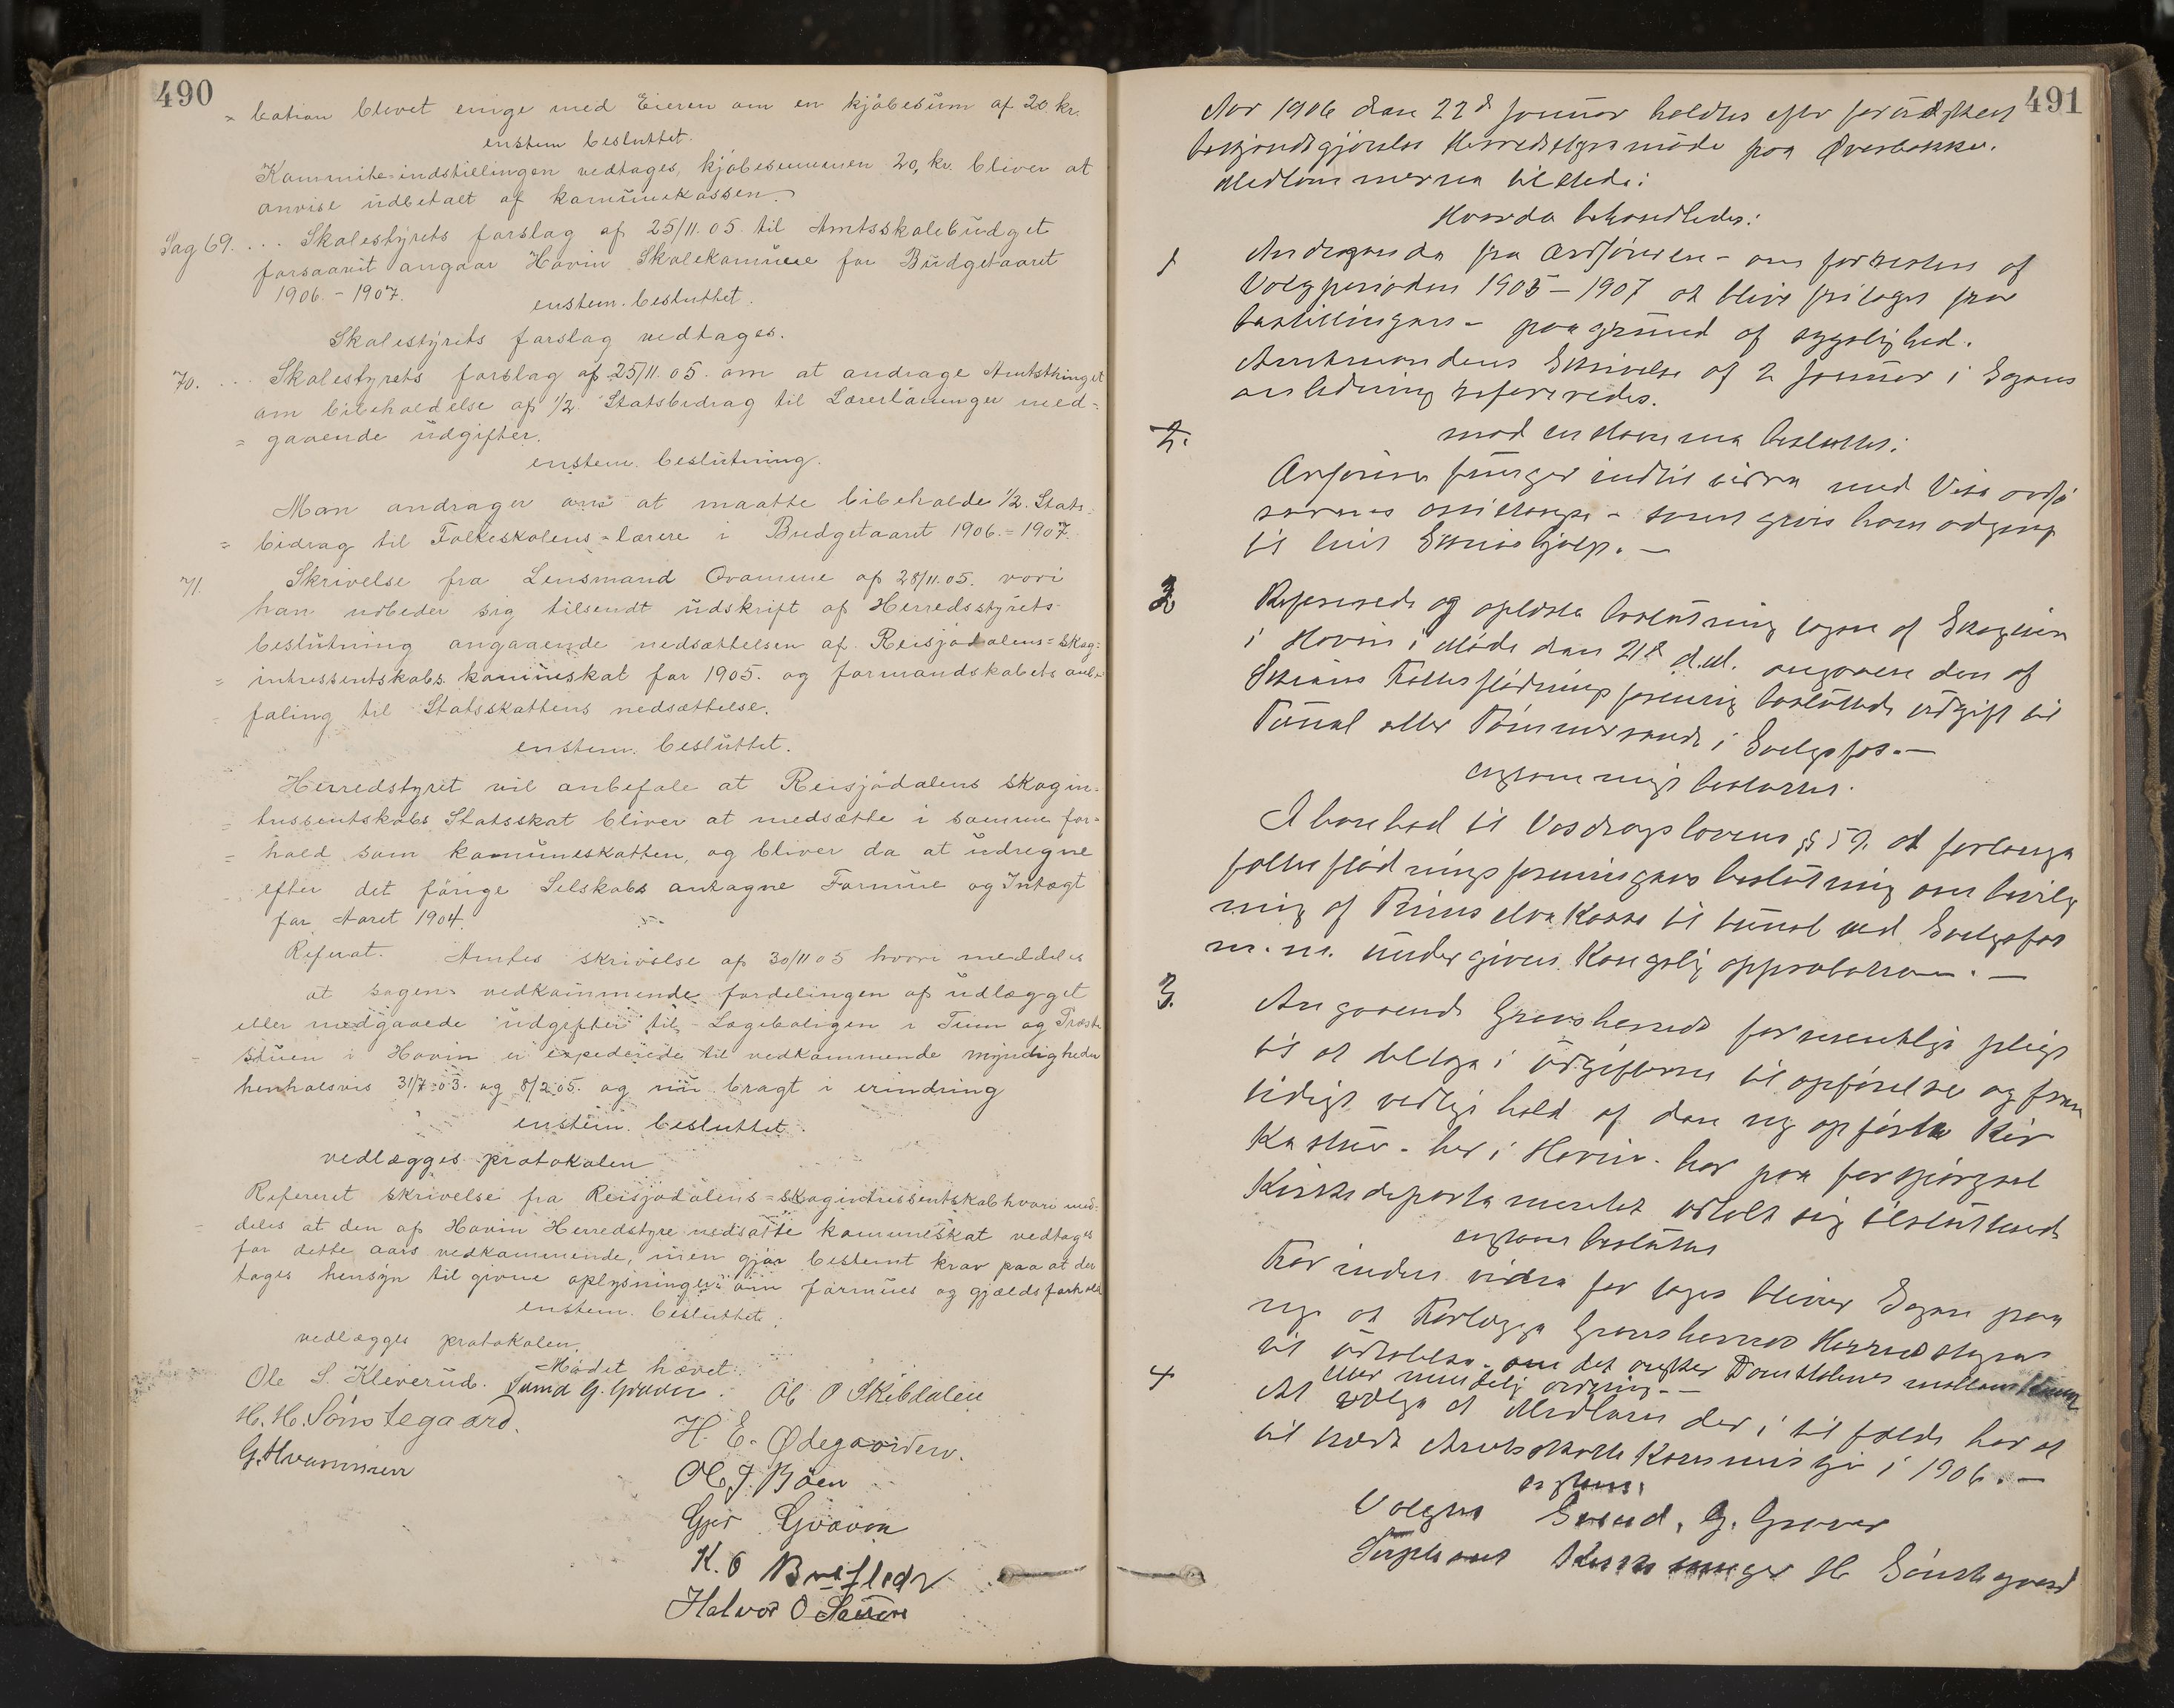 490
= cation blevet enige med Eieren om en kjöbesüm af 20. kr.
enstem besluttet.
Kommite indstillingen vedtages, kjöbesummen 20, kr. bliver at
anvise üdbetalt af kommünekassen.
Sag 69. ... Skolestÿrets forslag af 25/11.05. til Amtsskolebüdget
forsaavit angaar Hovin Skolekomüne for Büdgetaaret
1906. - 1907.
enstem. besluttet.
Skolestÿrets forslag vedtages.
70. ... Skolestyrets forslag af 25/11.05. om at andrage Amtsthinget
om bibeholdelse af 1/2. Statsbidrag til Lærerlönninger med-
= gaaende üdgifter.
enstem. beslütning.
Man andrager om at maatte bibeholde 1/2. Stats-
= bidrag til Folkeskolens-lærere i Budgetaaret 1906.=1907.
71. Skrivelse fra Lensmand Qvamme af 28/11.05. vori
han udbeder sig tilsendt üdskrift af Herredsstÿrets
beslütning angaaende nedsættelsen af Reisjödalens=skog=
= intressentskabs komüneskat for 1905. og formandskabets anbe-
faling til Statsskattens nedsættelse.
enstem. beslüttet.
Herredstyret vil anbefale at Reisjödalens skogin-
= tressentskabs Statsskat bliver at nedsætte i samme for=
= hold som komüneskatten, og bliver da at üdregne
efter det förige Selskabs antagne Formüe og Intægt
for Aaret 1904.
Referat. Amtes skrivelse af 30/11 05 hvori meddeles
at sagen vedkommende fordelingen af üdlægget
eller medgaaede üdgifter til Lægeboligen i Tinn og Præste
stüen i Hovin er expederede til vedkommende myndigheder
henholsvis 31/7.03. og 8/2 05. og nü bragt i erindring
enstem. besluttet.
vedlægges protokolen
Refereret skrivelse fra Reisjodalens=skogintressentskab hvori med-
deles at den af Hovin Herredstyre nedsatte kommuneskat vedtages
for dette aars vedkommende, men gjör bestemt krav paa at der
tages hensÿn til givne oplysninger om formües og gjældsforhold
enstem. besluttet.
vedlægges protokolen.
Mödet hævet.
Ole S. Kleverüd. Svend G. Graver. Ol O Skibdalen
H. H. Sönstegaard. H. E. Ødegaarden.
G. Hvammen Ol J. Böen
Gjer Gravon
K. O
Halvor O
491
Aar 1906 den 22d Januar holdtes efter forudskket
bekjendtgjörelse Herredstyremöde paa Øverbakke.
Medlemmerna tilstede:
Hvorda behandledes:
1 Andragende fra Ordföreren - om for resten af
Valgperioden 1905 - 1907 at blive fritaget fra
bestillingen - paa grund af sygelighed.
Amtmandens Skrivelse af 2 Januar i Sagens
anledning refereredes.
2. mod en stemme besluttes:
Ordföreren füngerer indtil videre med Vise ordfö
rerens assistanse - samt gives ham adgang
til leiet Skrivehjælp. -
2 Refererede og oplæste beslutning tagen af Skogeiere
i Hovin i Möde den 21de d.M. angaaende den af
Skiens Fællesflödnings forening besluttede üdgift til
Tünel eller Tömmerrende i Svelgfos. -
enstemmigt besluttes.
I henhold til Vasdragslovens § 57. at forlange
fællesflödningsforeningens beslutning om bevilg
ning af Tinnselva Kasse til tünel ved Svelgfos
m.m. ündergiven Kongelig approbation. -
3. Angaaende Gransherreds formentlige pligt
til at deltage i üdgifterne til opförelse og frem
tidigt vedlige hold af den ny opförte Kir
kestue - her i Hovin - har paa forspörgsel
Kirkedepartementet üdtalt sig
enstem besluttes
Før inden videre for tages bliver Sagen paa
ny at Forlægge Gransherred Herredstyre
til üdtalelse - om det ønsker Domstolenes mellemkomst
eller mindelig ordning. -
4 At vælge et Medlem der i til fælde har at
til træde Amtsskatte Kommisjon i 1906. -
enstem.
Valgtes Svend. G. Graver
Suppleant H Sönstegaard